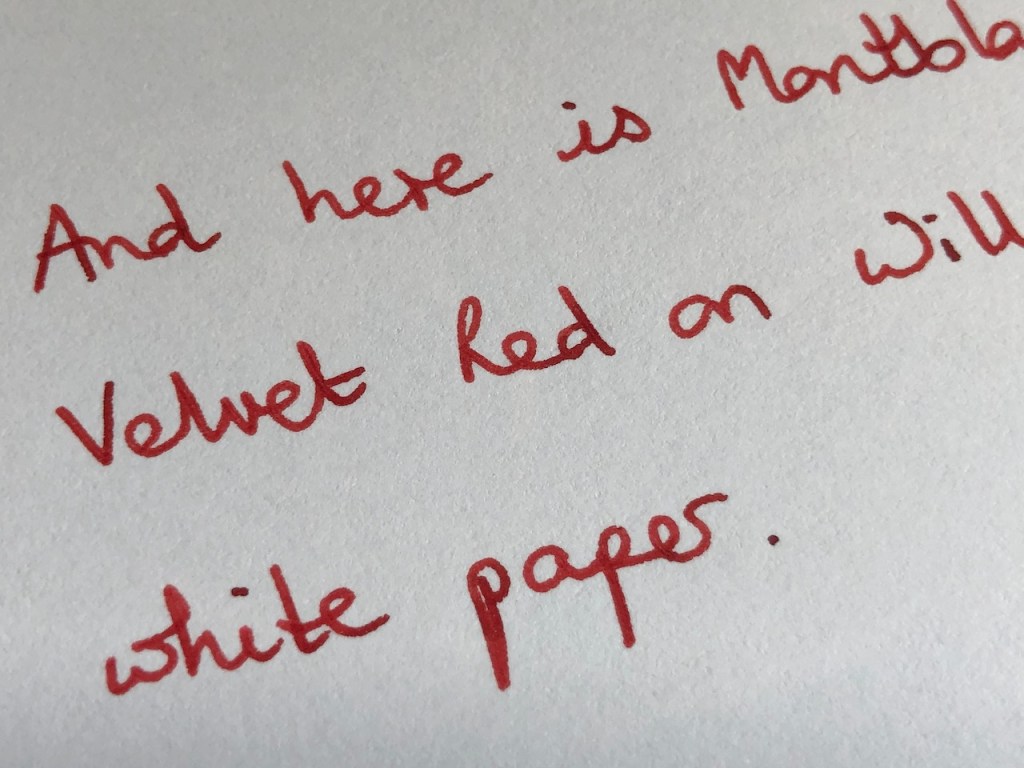 And here is Montbla
Velvet Red on Will
white paper.